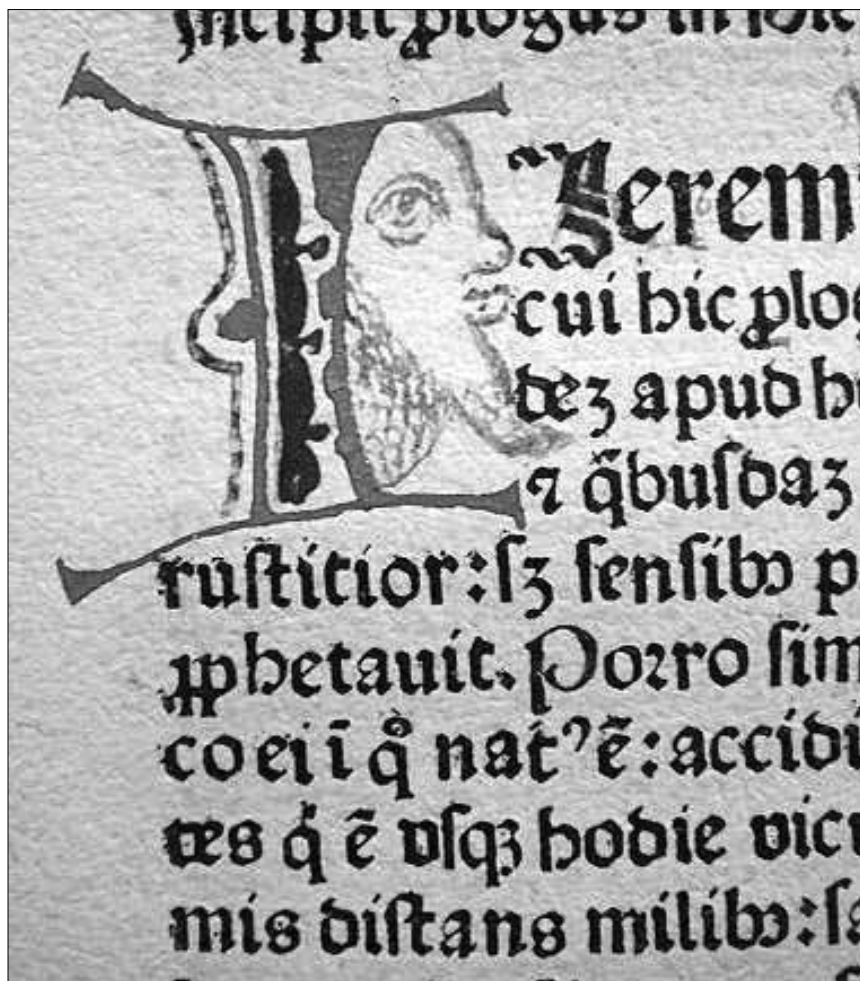 Incipit ꝓlogus in
Jerem
cui hic ꝓlo
dez apud h
⁊ q̃busdaꝫ
rusticior: sꝫ sensibꝰ p
ꝓphetauit. Porro sim
co ei ī q̊ natꝰ ẽ: accidi
tes q́ ẽ vsqꝫ hodie vic
mis distans milibꝰ: s